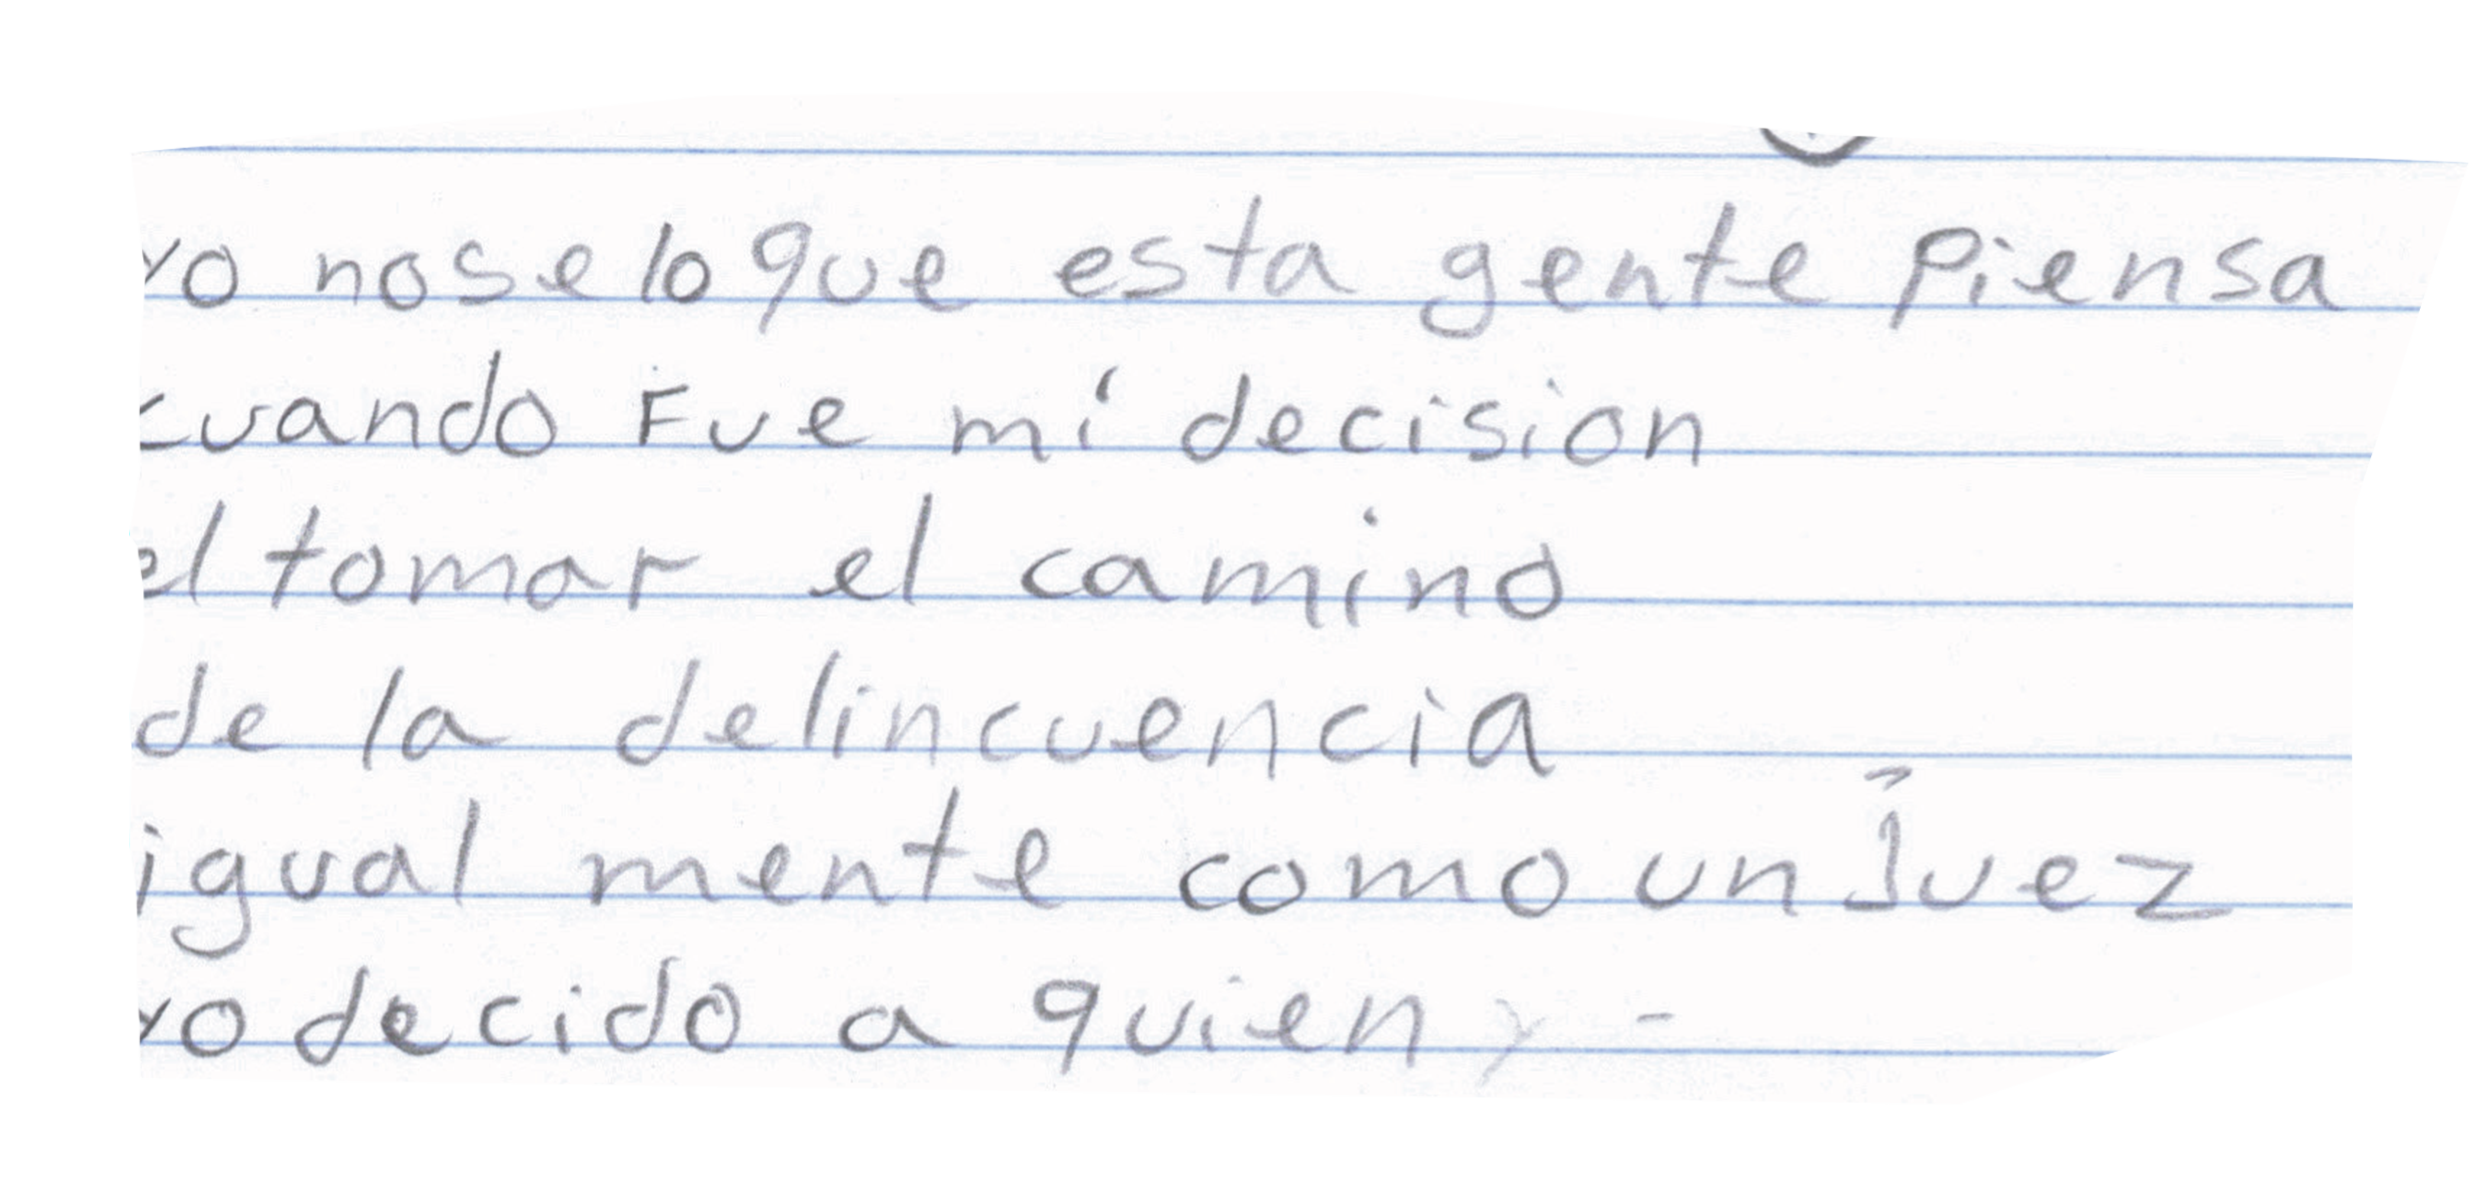 yo nose lo que esta gente piensa
cuando Fue mi decision
el tomar el camino
de la delincuencia
igual mente como un Juez
yo decido a quien y -